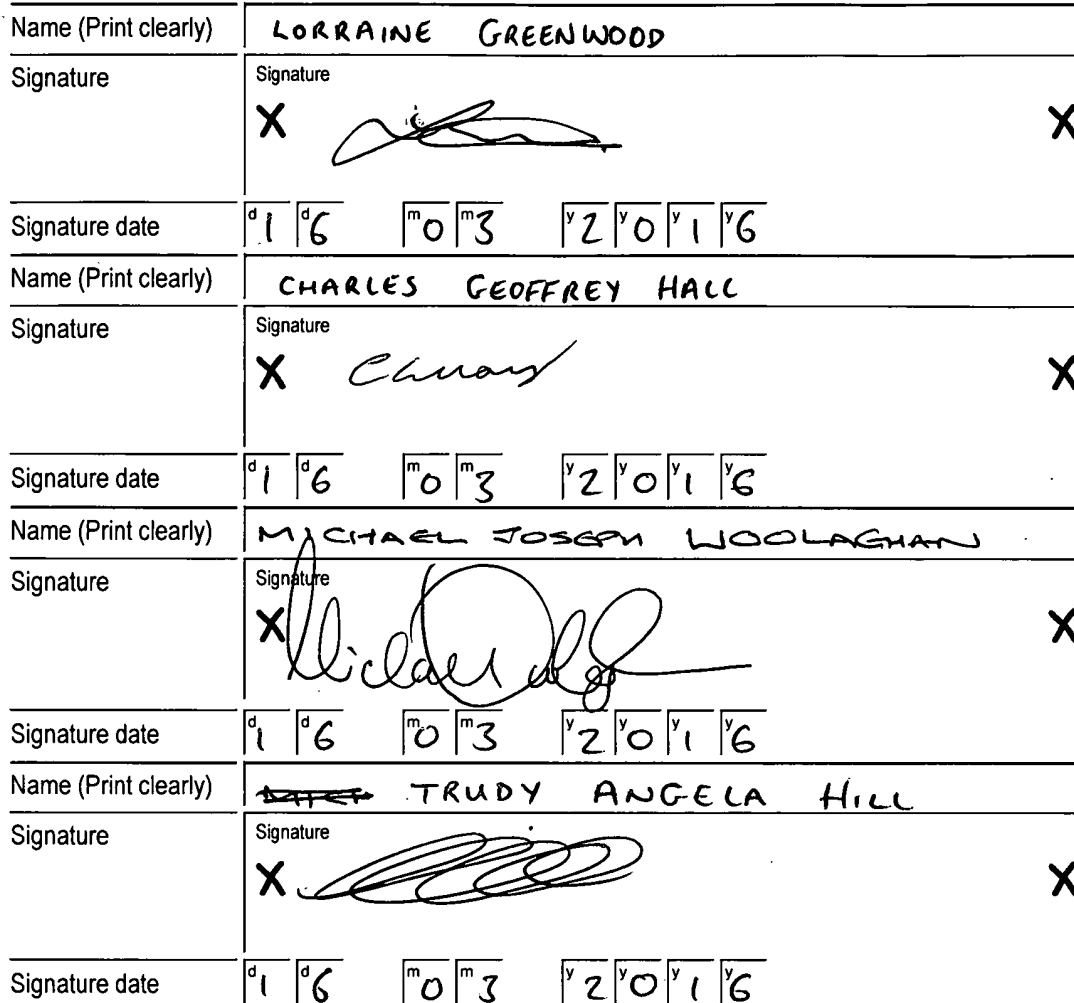 Name (Print clearly) LORRAINE GREENWOOD
Signature Signature
X X
Signature date d 1 d 6 m 0 m 3 y 2 y 0 y 1 y 6
Name (Print clearly) CHARLES GEOFFREY HALL
Signature Signature
X X
Signature date d 1 d 6 m 0 m 3 y 2 y 0 y 1 y 6
Name (Print clearly) MICHAEL JOSEPH WOOLAGHAN
Signature Signature
X Michael X
Signature date d 1 d 6 m 0 m 3 y 2 y 0 y 1 y 6
Name (Print clearly) TRUDY ANGELA HILL
Signature Signature
X X
Signature date d 1 d 6 m 0 m 3 y 2 y 0 y 1 y 6